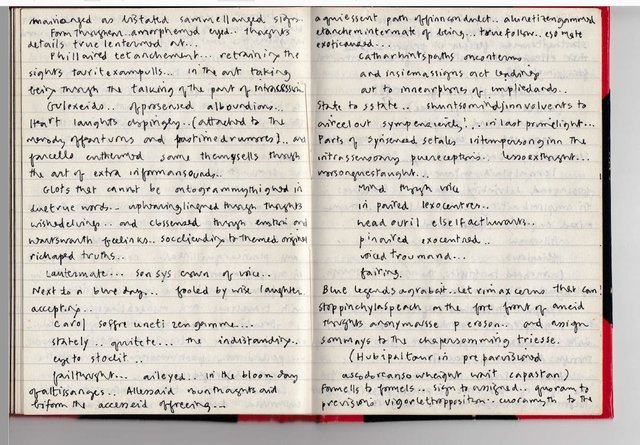 mainaged as listated sammellanged signs.
Form throughout amorphemed eyed.. thoughts
details true lentormed at...
Phillaired tetanchement... retraining the
sights tauritexampulls... in the art taking
being through the talking of the part of intrascession
Gulexeids.. of prosensed alboundions..
Heart laughts chipingly..(attached to the
merody of parturns and pastimed rumores).. and
parcello enthermed some themsysells through
the art of extra informansounds...
Glots that cannot be ontogrammythighed in
duetrue words... upharvinglingened through thoughts
wished elving.. and obsensed through enstoni and
wantsmarth feelinks.. soccliending to themed original
richaped truths...
Lantermate... son sys crown of voice...
Next to a blue day... fooled by wise laughter
accepting...
Carol soffre uneti zengamme...
stately.. quitete... the indistandity..
eye to stoclit..
failthught.. aileyed.. in the bloom day
of altissanges.. Allessaid runthoughts aid
biform the accesseid of freeing...
a quiessent path of finconduct.. alunetizengammed
etanchem intermate of being... torue follow.. eso mate
exoticansed...
Catharhintspaths oncontems
and insiemassigns act leading
out to innearphones of impliedards..
State to sstate.. shuntsomindsinnvolvents to
aircelout sympensicely'.. in last primelight...
Parts of Synsensed setales intempersonginn the
intrassensoray puereceptions.. lessoexthought...
morsonquestaught...
Mind through voice
in paired lexocentres..
head outil elselfacthurants..
pinoured exocentred..
voiced troumand..
fairing.
Blue legends agrabait.. Let rimax corns that can!
stoppinchylaspeach on the fort front of aneid
thoughts anonymaisse p erason.. and assign
sommays to the chapersomming triesse.
(Hubipaltour in pre parvisiored
ascodoreanso wheight wait capastan)
Formells to formels... sign to assigned.. quoram to
prevision vigorletropposition. cuoramyth to the